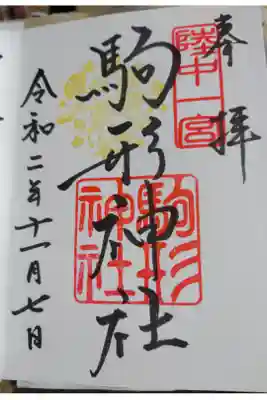 奉拝
陸中一宮
駒形神社
駒形神社
令和二年十一月七日